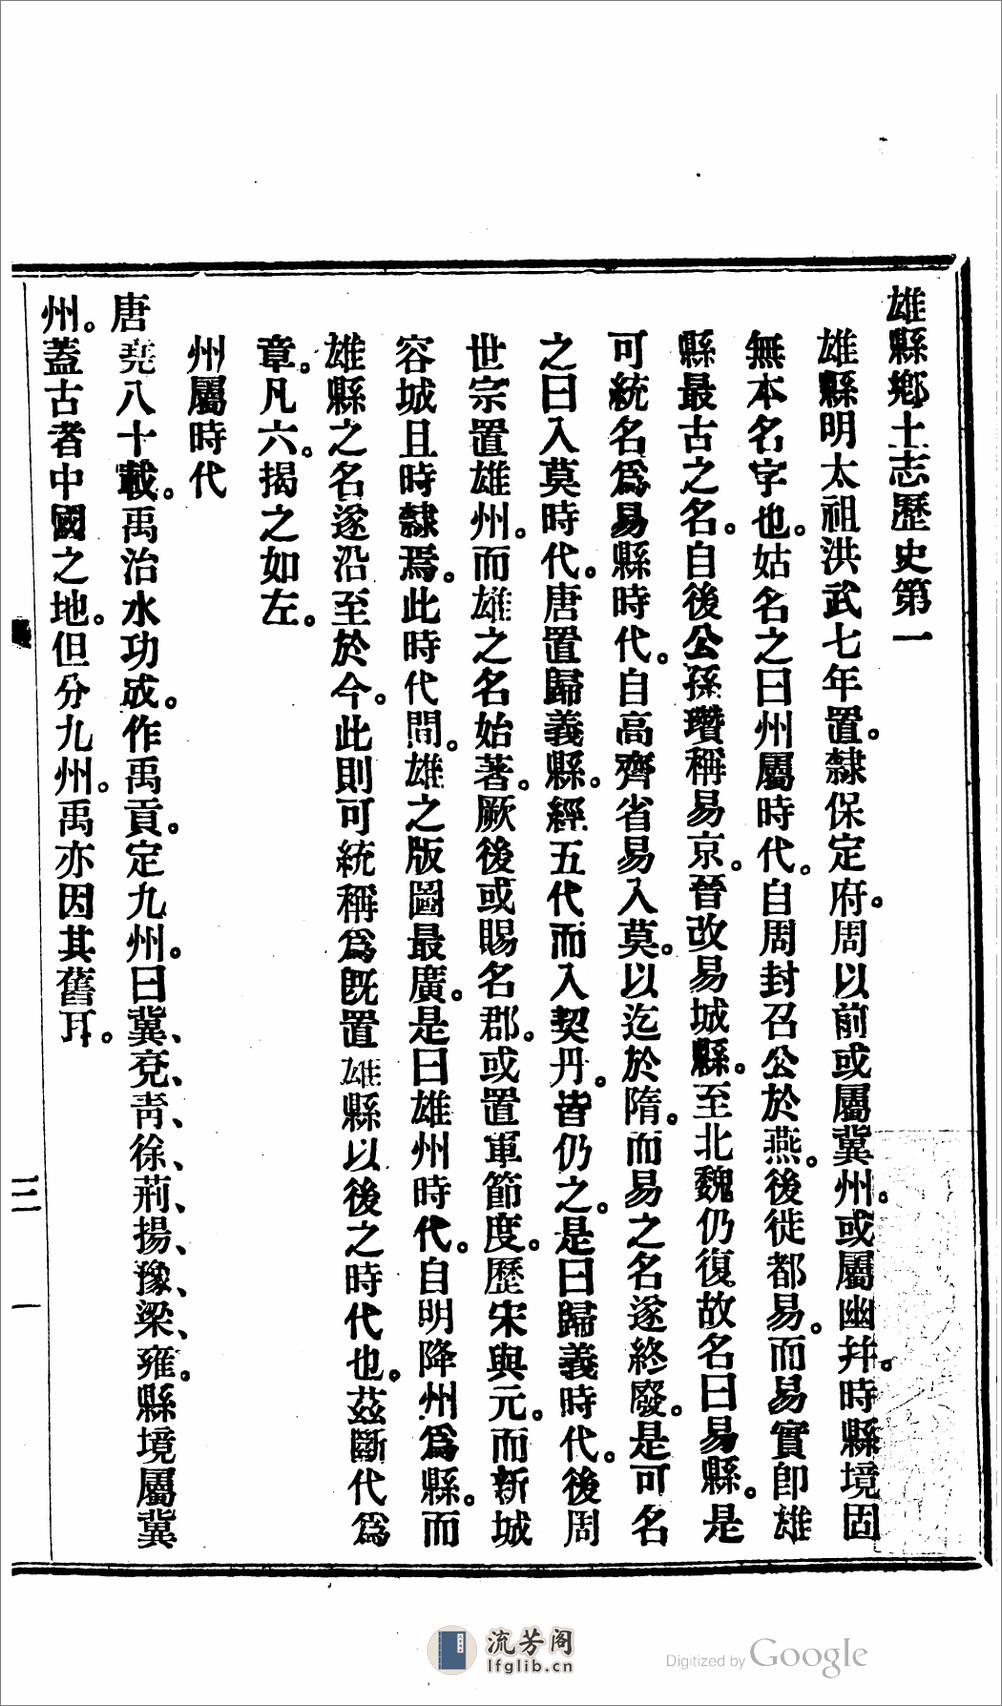 雄縣鄉土志歷史第一
雄縣明太祖洪武七年置。隸保定府。周以前或屬冀州。或屬幽幷。時縣境固
無本名字也。姑名之曰州屬時代。自周封召公於燕。後徙都易。而易實卽雄
縣最古之名。自後公孫瓚稱易京。晉改易城縣。至北魏仍復故名曰易縣。是
可統名爲易縣時代。自高齊省易入莫。以迄於隋。而易之名遂終廢。是可名
之曰入莫時代。唐置歸義縣。經五代而入契丹。皆仍之。是曰歸義時代。後周
世宗置雄州。而雄之名始著。厥後或賜名郡。或置軍節度。歷宋與元。而新城
容城且時隸焉。此時代間。雄之版圖最廣。是曰雄州時代。自明降州爲縣。而
雄縣之名遂沿至於今。此則可統稱爲旣置雄縣以後之時代也。茲斷代爲
章。凡六。揭之如左。
州屬時代
唐堯八十載。禹治水功成。作禹貢。定九州。曰冀、兗、靑、徐、荊、揚、豫、梁、雍。縣境屬冀
州。蓋古者中國之地。但分九州。禹亦因其舊耳。
三 一
流芳阁
lfglib.cn
Digitized by Google